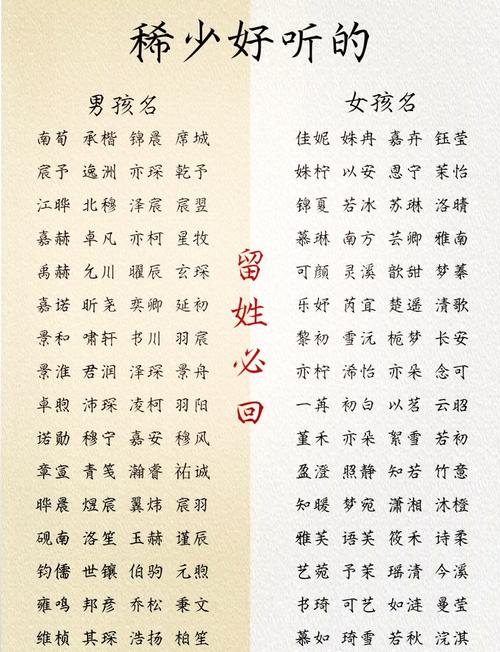 稀少好听的
男孩名
南荀 承楷 锦晨 席城
宸予 逸洲 亦琛 乾予
江晔 北穆 泽宸 宸翌
嘉赫 卓凡 亦柯 星牧
禹赫 允川 曜辰 玄琛
嘉诺 昕尧 奕卿 延初
景和 啸轩 书川 羽宸
景淮 君润 泽琛 景舟
卓煦 沛琛 凌柯 羽阳
诺勋 穆宁 嘉安 穆风
章宣 青笺 瀚睿 祐诚
晔晨 煜宸 翼炜 宸羽
砚南 洛笙 玉赫 谨辰
钧儒 世镶 伯驹 元煦
雍鸣 邦彦 乔松 秉文
维桢 其琛 浩扬 柏笙
留姓必回
女孩名
佳妮 姝冉 嘉卉 钰莹
姝柠 以安 思宁 茉怡
锦夏 若冰 苏琳 洛晴
慕琳 南方 芸卿 雅南
可颜 灵溪 歆甜 梦蓁
乐妤 芮宜 楚遥 清歌
黎初 雪沅 栀梦 长安
亦柠 浠怡 亦朵 念可
一苒 初白 以茗 云昭
堇禾 亦朵 絮雪 若初
盈澄 照静 知若 竹意
知暖 梦宛 潇湘 沐橙
雅芙 语芙 筱禾 诗柔
艺菀 予茉 瑶清 今溪
书琦 可艺 如涟 曼莹
慕如 琦雪 若秋 浣淇